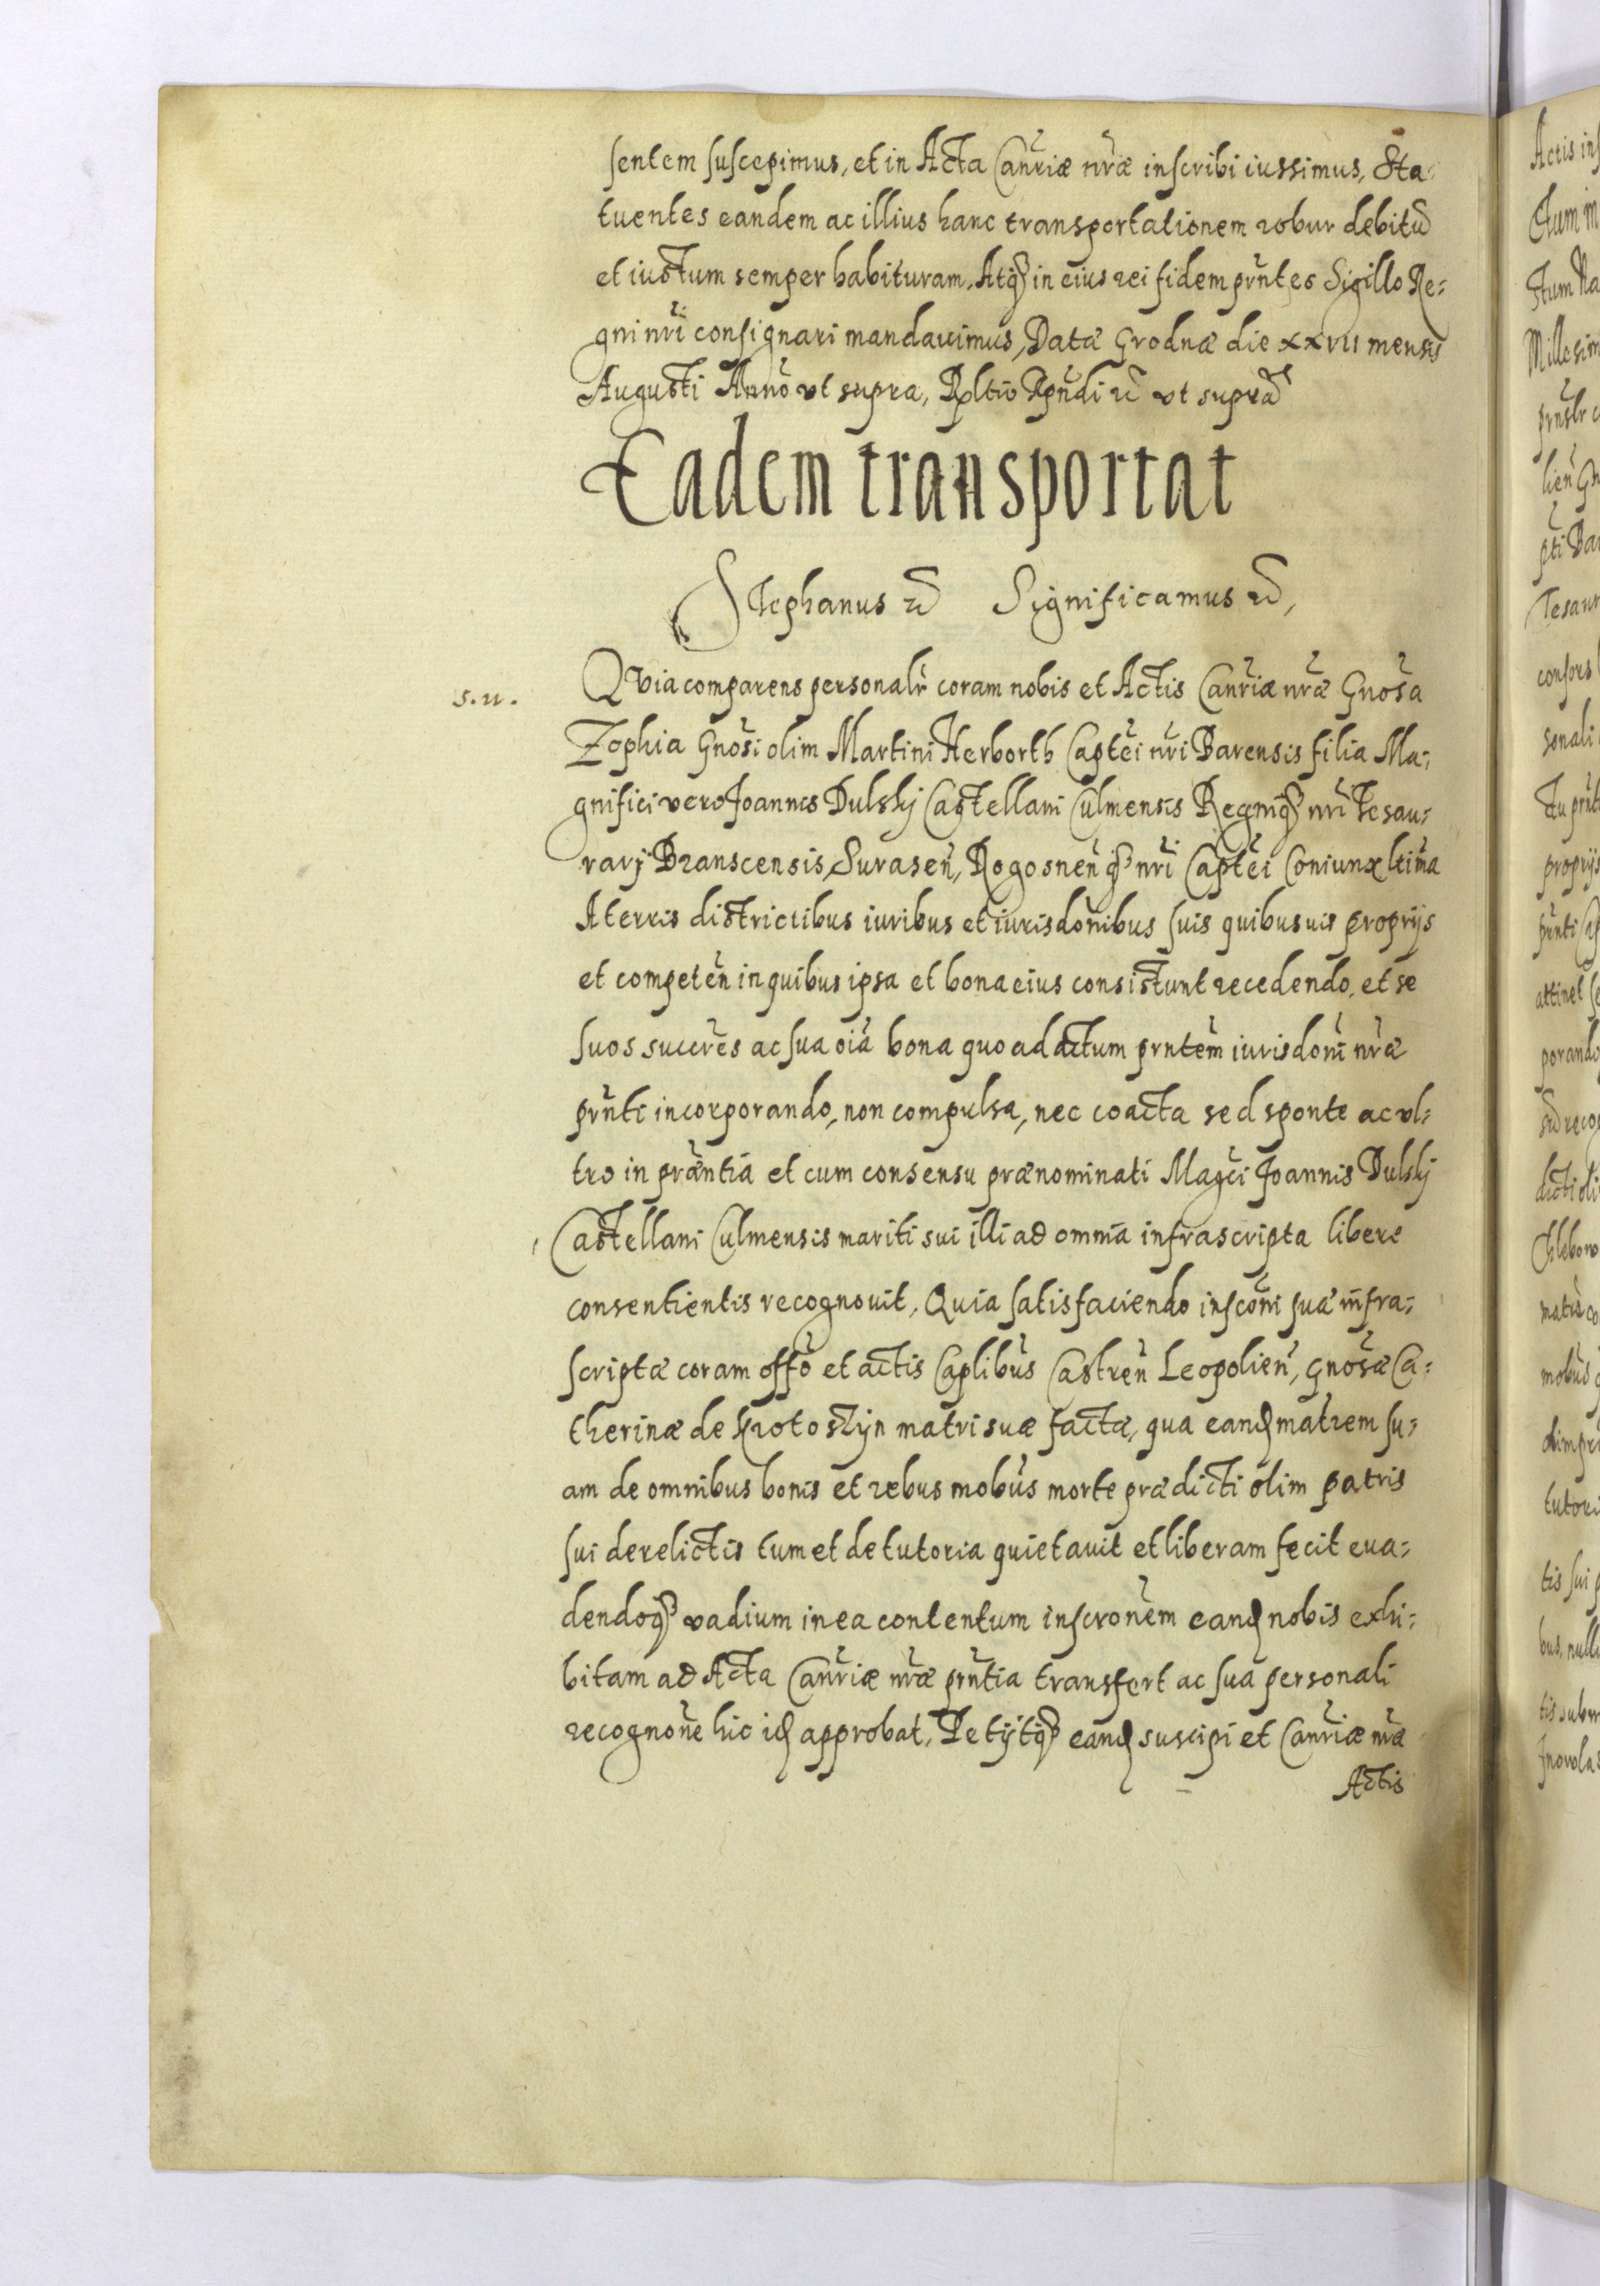 sentem suscepimus, et in Acta Canriæ nræ inscribi iussimus, Sta-
tuentes eandem ac illius hanc transportationem robur debitũ
et iustum semper habituram. Atq3 in eius rei fidem pñtes Sigillo Re-
gni nri consignari mandauimus, Datæ Grodnæ die xxvii mensis
Augusti Anno vt supra, Rltio Rpndi rc vt supra
Eadem transportat
Stephanus rc Significamus rc,
s. u.
Quia comparens personalr coram nobis et Actis Canriæ nræ Gnosa
Zophia Gnosi olim Martini Herborth Captei nri Barensis filia Ma-
gnifici vero Joannis Dulskj Castellani Culmensis Regniq3 nri Tesau-
rarij Branscensis, Surasen, Rogosnenq3 nri Captei Coniunx ltima
A terris districtibus iuribus et iurisdonibus suis quibusuis proprijs
et competen in quibus ipsa et bona eius consistunt recedendo, et se
suos succres ac sua oia bona quo ad actum prntem iurisdoni nræ
prnti incorporando, non compulsa, nec coacta sed sponte ac vl-
tro in præntia et cum consensu prænominati Magci Joannis Dulskj
Castellani Culmensis mariti sui illi ad omnia infrascripta libere
consentientis recognouit, Quia satisfaciendo insconi suæ infra-
scriptæ coram offo et actis Caplibus Castren Leopolien, Gnosæ Ca-
therinæ de Krotoszijn matri suæ factæ, qua eandq matrem su-
am de omnibus bonis et rebus mobus morte prædicti olim patris
sui derelictis tum et de tutoria quietauit et liberam fecit eua-
dendoq3 vadium in ea contentum inscronem eandq nobis exhi-
bitam ad Acta Canriæ nræ prntia transfert ac sua personali
recognone hic idq approbat, Petijtq3 eandq suscipi et Canriæ nræ
Actis